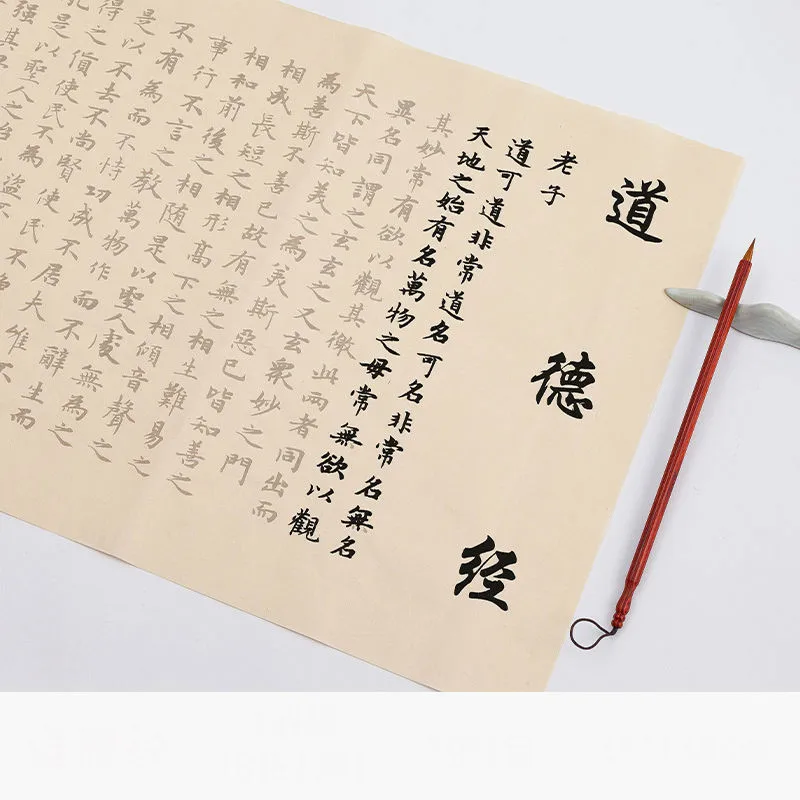 道德经
老子
道可道非常道名可名非常名無名
天地之始有名萬物之母常無欲以觀
其妙常有欲以觀其徼此兩者同出而
異名同謂之玄玄之又玄衆妙之門
天下皆知美之為美斯惡已皆知善之
為善斯不善已故有無之相生難易之
相成長短之相形高下之相傾音聲之
相和前後之相随是以聖人處無為之
事行不言之教萬物作而不辭生而
不有為而不恃功成不居夫唯不
是以不去不尚賢使民不
得之貨使民不為盜不
是以聖人之治
强其